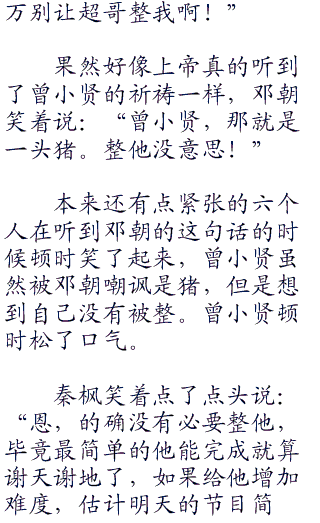 万别让超哥整我啊！”
果然好像上帝真的听到
了曾小贤的祈祷一样，邓朝
笑着说：“曾小贤，那就是
一头猪。整他没意思！”
本来还有点紧张的六个
人在听到邓朝的这句话的时
候顿时笑了起来，曾小贤虽
然被邓朝嘲讽是猪，但是想
到自己没有被整。曾小贤顿
时松了口气。
秦枫笑着点了点头说：
“恩，的确没有必要整他，
毕竟最简单的他能完成就算
谢天谢地了，如果给他增加
难度，估计明天的节目简